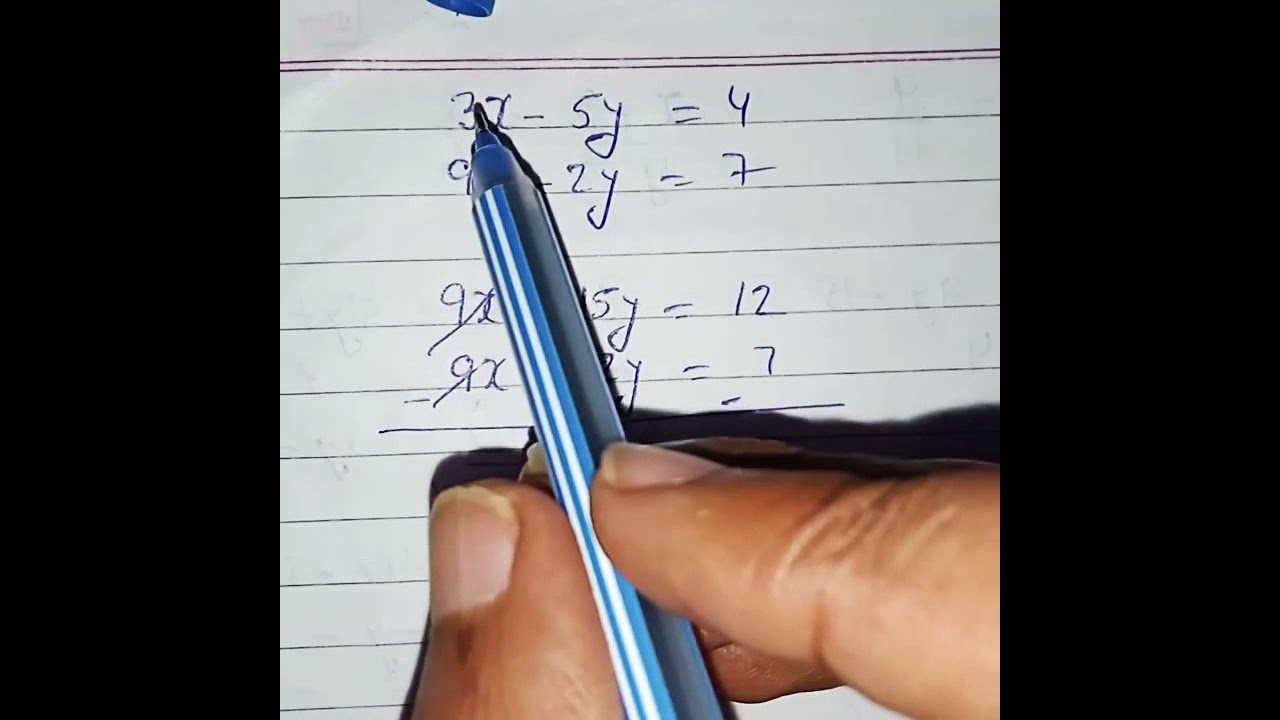 3x - 5y = 4
9 - 2y = 7
9x 15y = 12
9x 2y = 7
- -